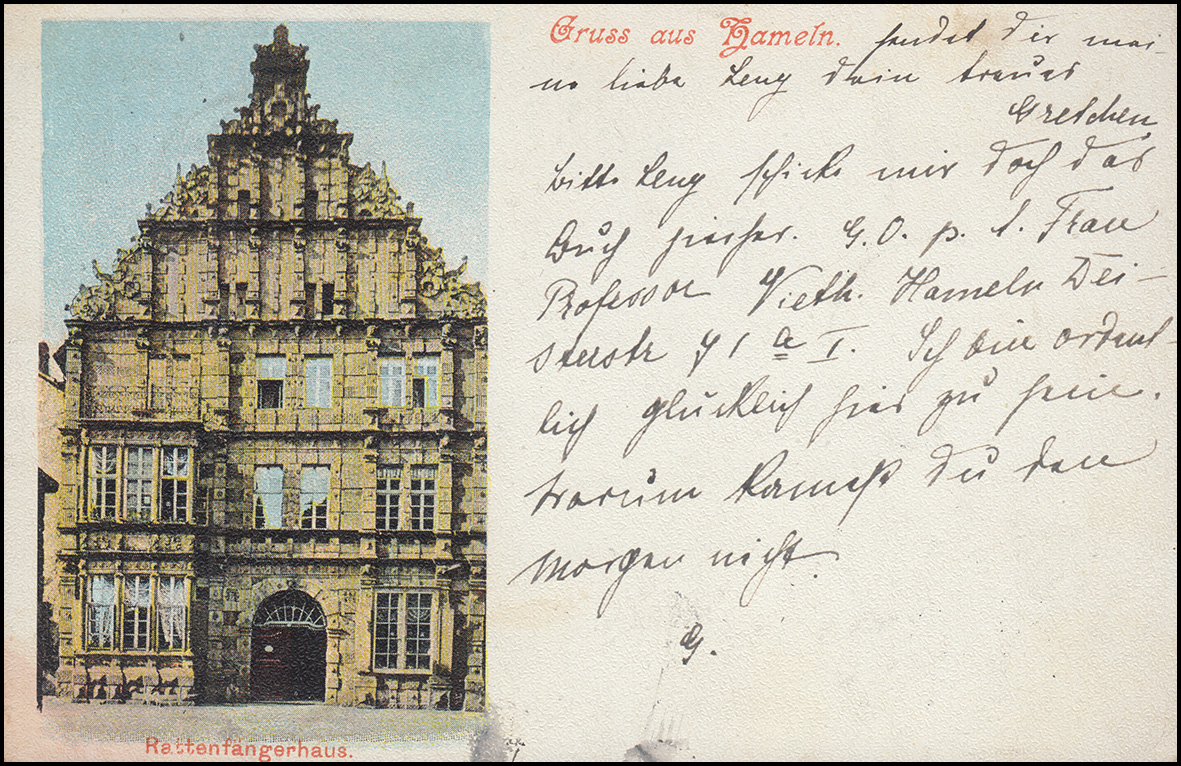 Gruss aus Hameln. sendet dir mei-
ne liebe Leny dein treues
Gretchen
Bitte Leny schicke mir doch das
Buch hierher. G. O. p. A. Frau
Professor Vieth. Hameln Dei-
sterstr 71 a I. Ich bin ordent-
lich glücklich hier zu sein.
Warum kamest du den
Morgen nicht.
G.
Rattenfängerhaus.